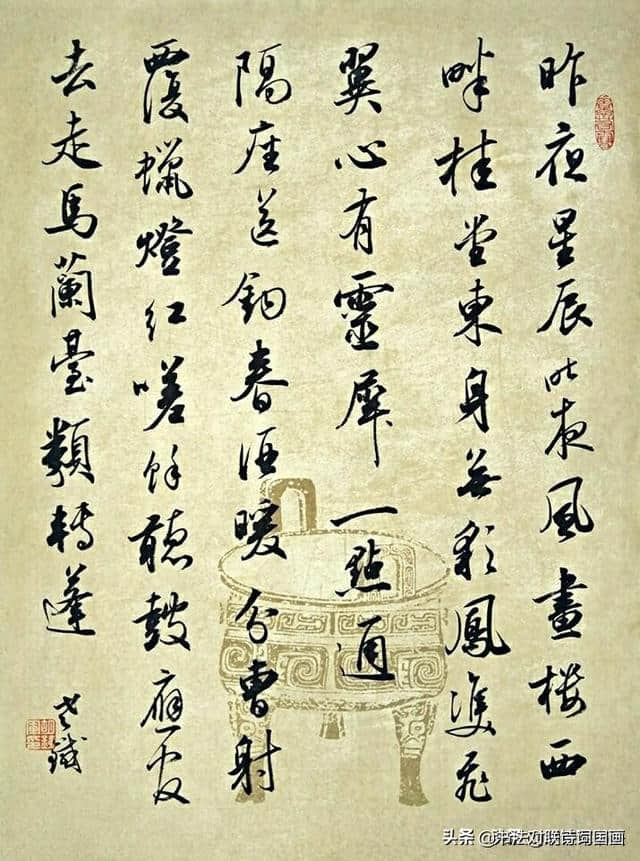 昨夜星辰昨夜風畫楼西
畔桂堂東身無彩鳳雙飛
翼心有靈犀一點通
隔座送鈎春酒暖分曹射
覆蠟燈紅嗟餘聽鼓應官
去走馬蘭臺類轉蓬
老鐵
头条 @书法对联诗词国画